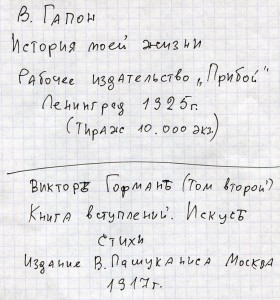 В. Гапон
История моей жизни
Рабочее издательство „Прибой"
Ленинград 1925г.
(Тираж 10.000 экз)
Викторъ Гофманъ (том второй)
Книга вступлений. Искусъ
стихи
Издание В. Пашуканиса Москва
1917г.